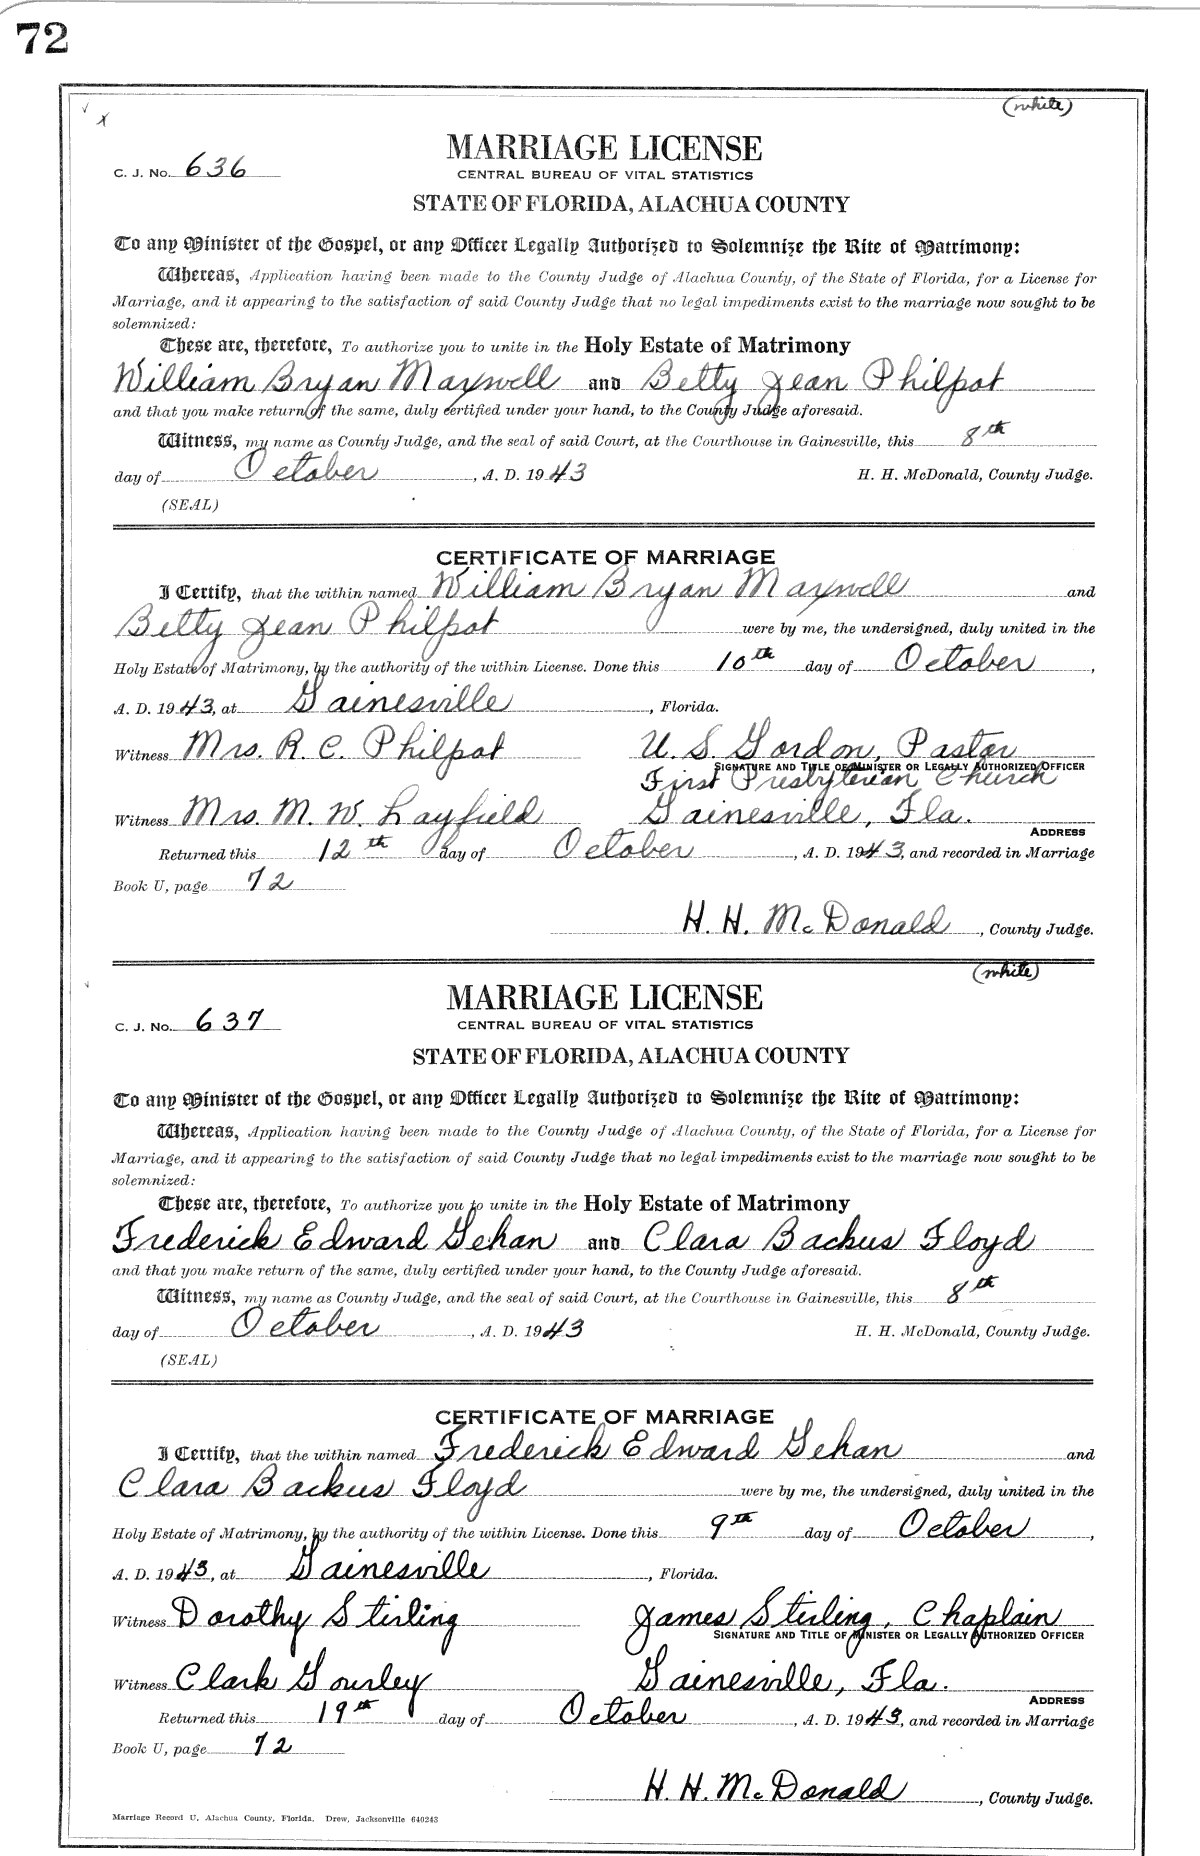 72
(white)
C. J. No. 636
MARRIAGE LICENSE
CENTRAL BUREAU OF VITAL STATISTICS
STATE OF FLORIDA, ALACHUA COUNTY
To any Minister of the Gospel, or any Officer Legally Authorized to Solemnize the Rite of Matrimony:
Whereas, Application having been made to the County Judge of Alachua County, of the State of Florida, for a License for
Marriage, and it appearing to the satisfaction of said County Judge that no legal impediments exist to the marriage now sought to be
solemnized:
These are, therefore, To authorize you to unite in the Holy Estate of Matrimony
William Bryan Maxwell and Betty Jean Philpot
and that you make return of the same, duly certified under your hand, to the County Judge aforesaid.
Witness, my name as County Judge, and the seal of said Court, at the Courthouse in Gainesville, this 8th
day of October, A. D. 1943 H. H. McDonald, County Judge.
(SEAL)
CERTIFICATE OF MARRIAGE
I Certify, that the within named William Bryan Maxwell and
Betty Jean Philpot were by me, the undersigned, duly united in the
Holy Estate of Matrimony, by the authority of the within License. Done this 10th day of October,
A. D. 1943, at Gainesville, Florida.
Witness Mrs. R. C. Philpot U. S. Gordon, Pastor
SIGNATURE AND TITLE OF MINISTER OR LEGALLY AUTHORIZED OFFICER
First Presbyterian Church
Witness Mrs. M. W. Layfield Gainesville, Fla.
ADDRESS
Returned this 12th day of October, A. D. 1943, and recorded in Marriage
Book U, page 72
H. H. McDonald, County Judge.
(white)
C. J. No. 637
MARRIAGE LICENSE
CENTRAL BUREAU OF VITAL STATISTICS
STATE OF FLORIDA, ALACHUA COUNTY
To any Minister of the Gospel, or any Officer Legally Authorized to Solemnize the Rite of Matrimony:
Whereas, Application having been made to the County Judge of Alachua County, of the State of Florida, for a License for
Marriage, and it appearing to the satisfaction of said County Judge that no legal impediments exist to the marriage now sought to be
solemnized:
These are, therefore, To authorize you to unite in the Holy Estate of Matrimony
Frederick Edward Gehan and Clara Backus Floyd
and that you make return of the same, duly certified under your hand, to the County Judge aforesaid.
Witness, my name as County Judge, and the seal of said Court, at the Courthouse in Gainesville, this 8th
day of October, A. D. 1943 H. H. McDonald, County Judge.
(SEAL)
CERTIFICATE OF MARRIAGE
I Certify, that the within named Frederick Edward Gehan and
Clara Backus Floyd were by me, the undersigned, duly united in the
Holy Estate of Matrimony, by the authority of the within License. Done this 9th day of October,
A. D. 1943, at Gainesville, Florida.
Witness Dorothy Stirling James Stirling, Chaplain
SIGNATURE AND TITLE OF MINISTER OR LEGALLY AUTHORIZED OFFICER
Witness Clark Gourley Gainesville, Fla.
ADDRESS
Returned this 19th day of October, A. D. 1943, and recorded in Marriage
Book U, page 72
H. H. McDonald, County Judge.
Marriage Record U, Alachua County, Florida. Drew, Jacksonville 640243